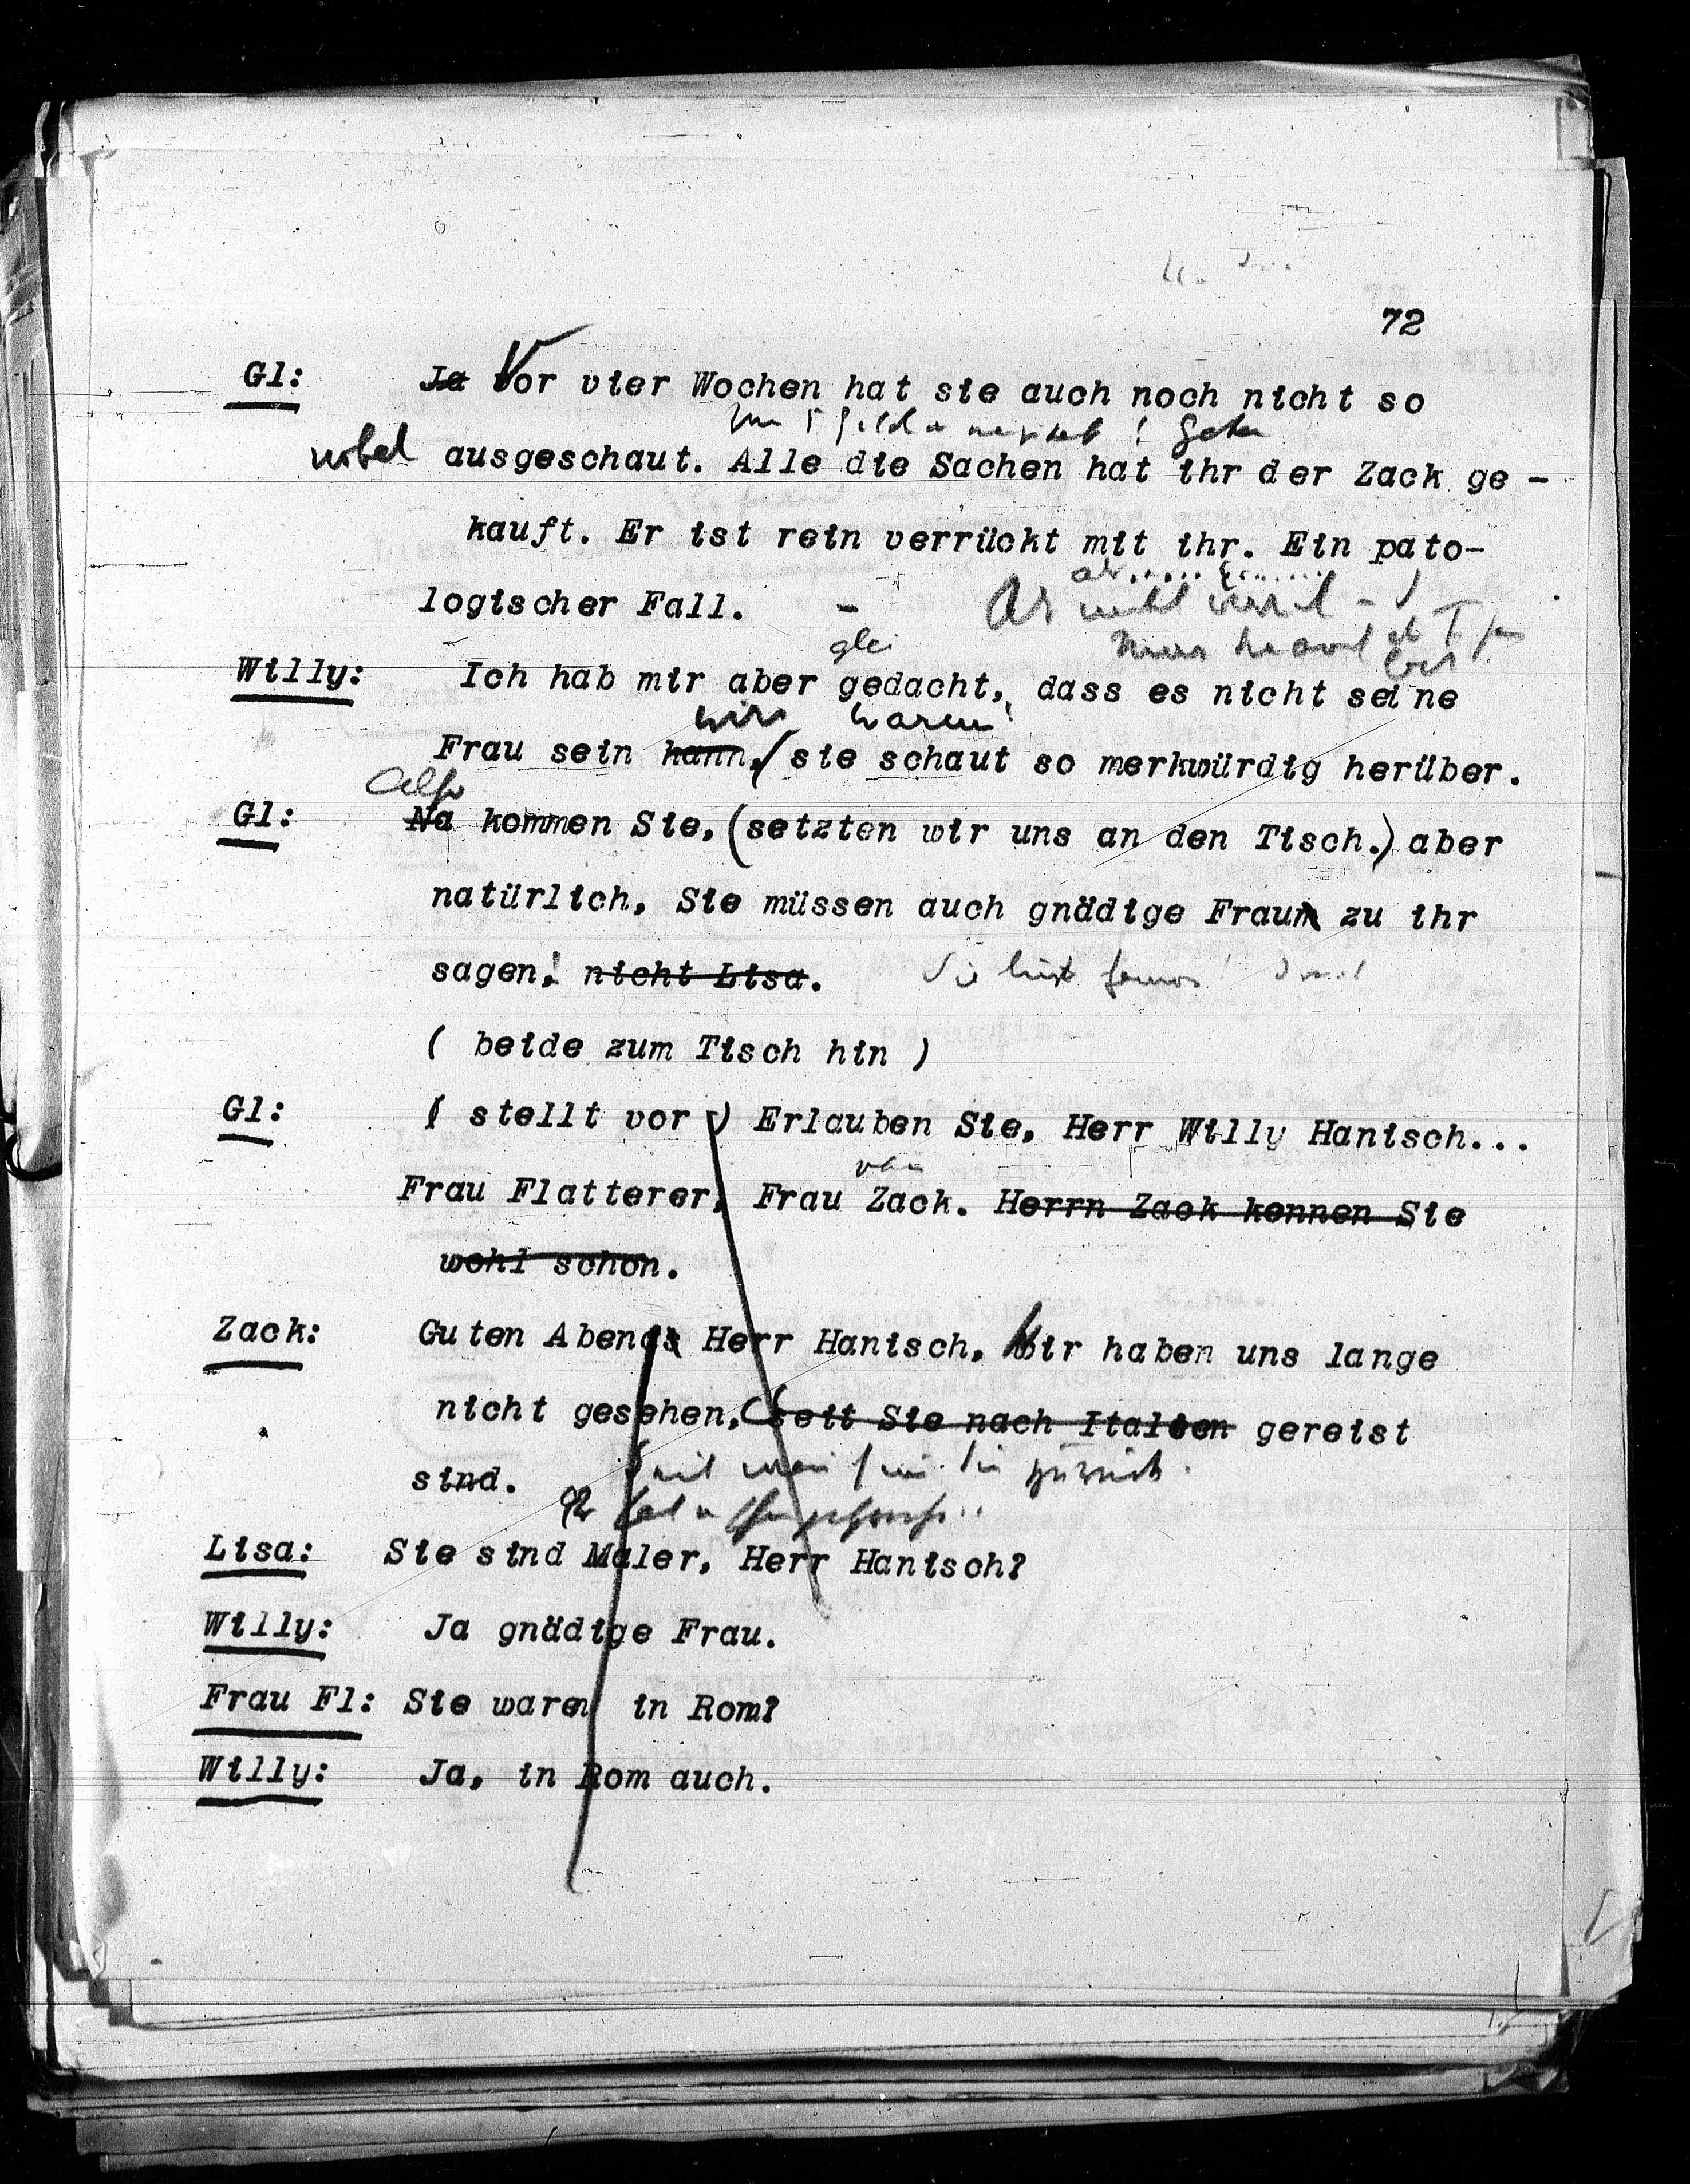 72
Gl: Ja Vor vier Wochen hat sie auch noch nicht so
nobel ausgeschaut. Alle die Sachen hat ihr der Zack ge-
kauft. Er ist rein verrückt mit ihr. Ein pato-
logischer Fall. -
glei
Willy: Ich hab mir aber gedacht, dass es nicht seine
wir waren
Frau sein kann, sie schaut so merkwürdig herüber.
Also
Gl: Na kommen Sie, (setzten wir uns an den Tisch.) aber
natürlich, Sie müssen auch gnädige Fraun zu ihr
sagen! nicht Lisa.
( beide zum Tisch hin )
Gl: ( stellt vor ) Erlauben Sie, Herr Willy Hanisch...
Frau Flatterer, Frau Zack. Herrn Zack kennen Sie
wohl schon.
Zack: Guten Abends Herr Hanisch, Wir haben uns lange
nicht gesehen, (seit Sie nach Italien gereist
sind.
Lisa: Sie sind Maler, Herr Hanisch?
Willy: Ja gnädige Frau.
Frau Fl: Sie waren in Rom?
Willy: Ja, in Rom auch.